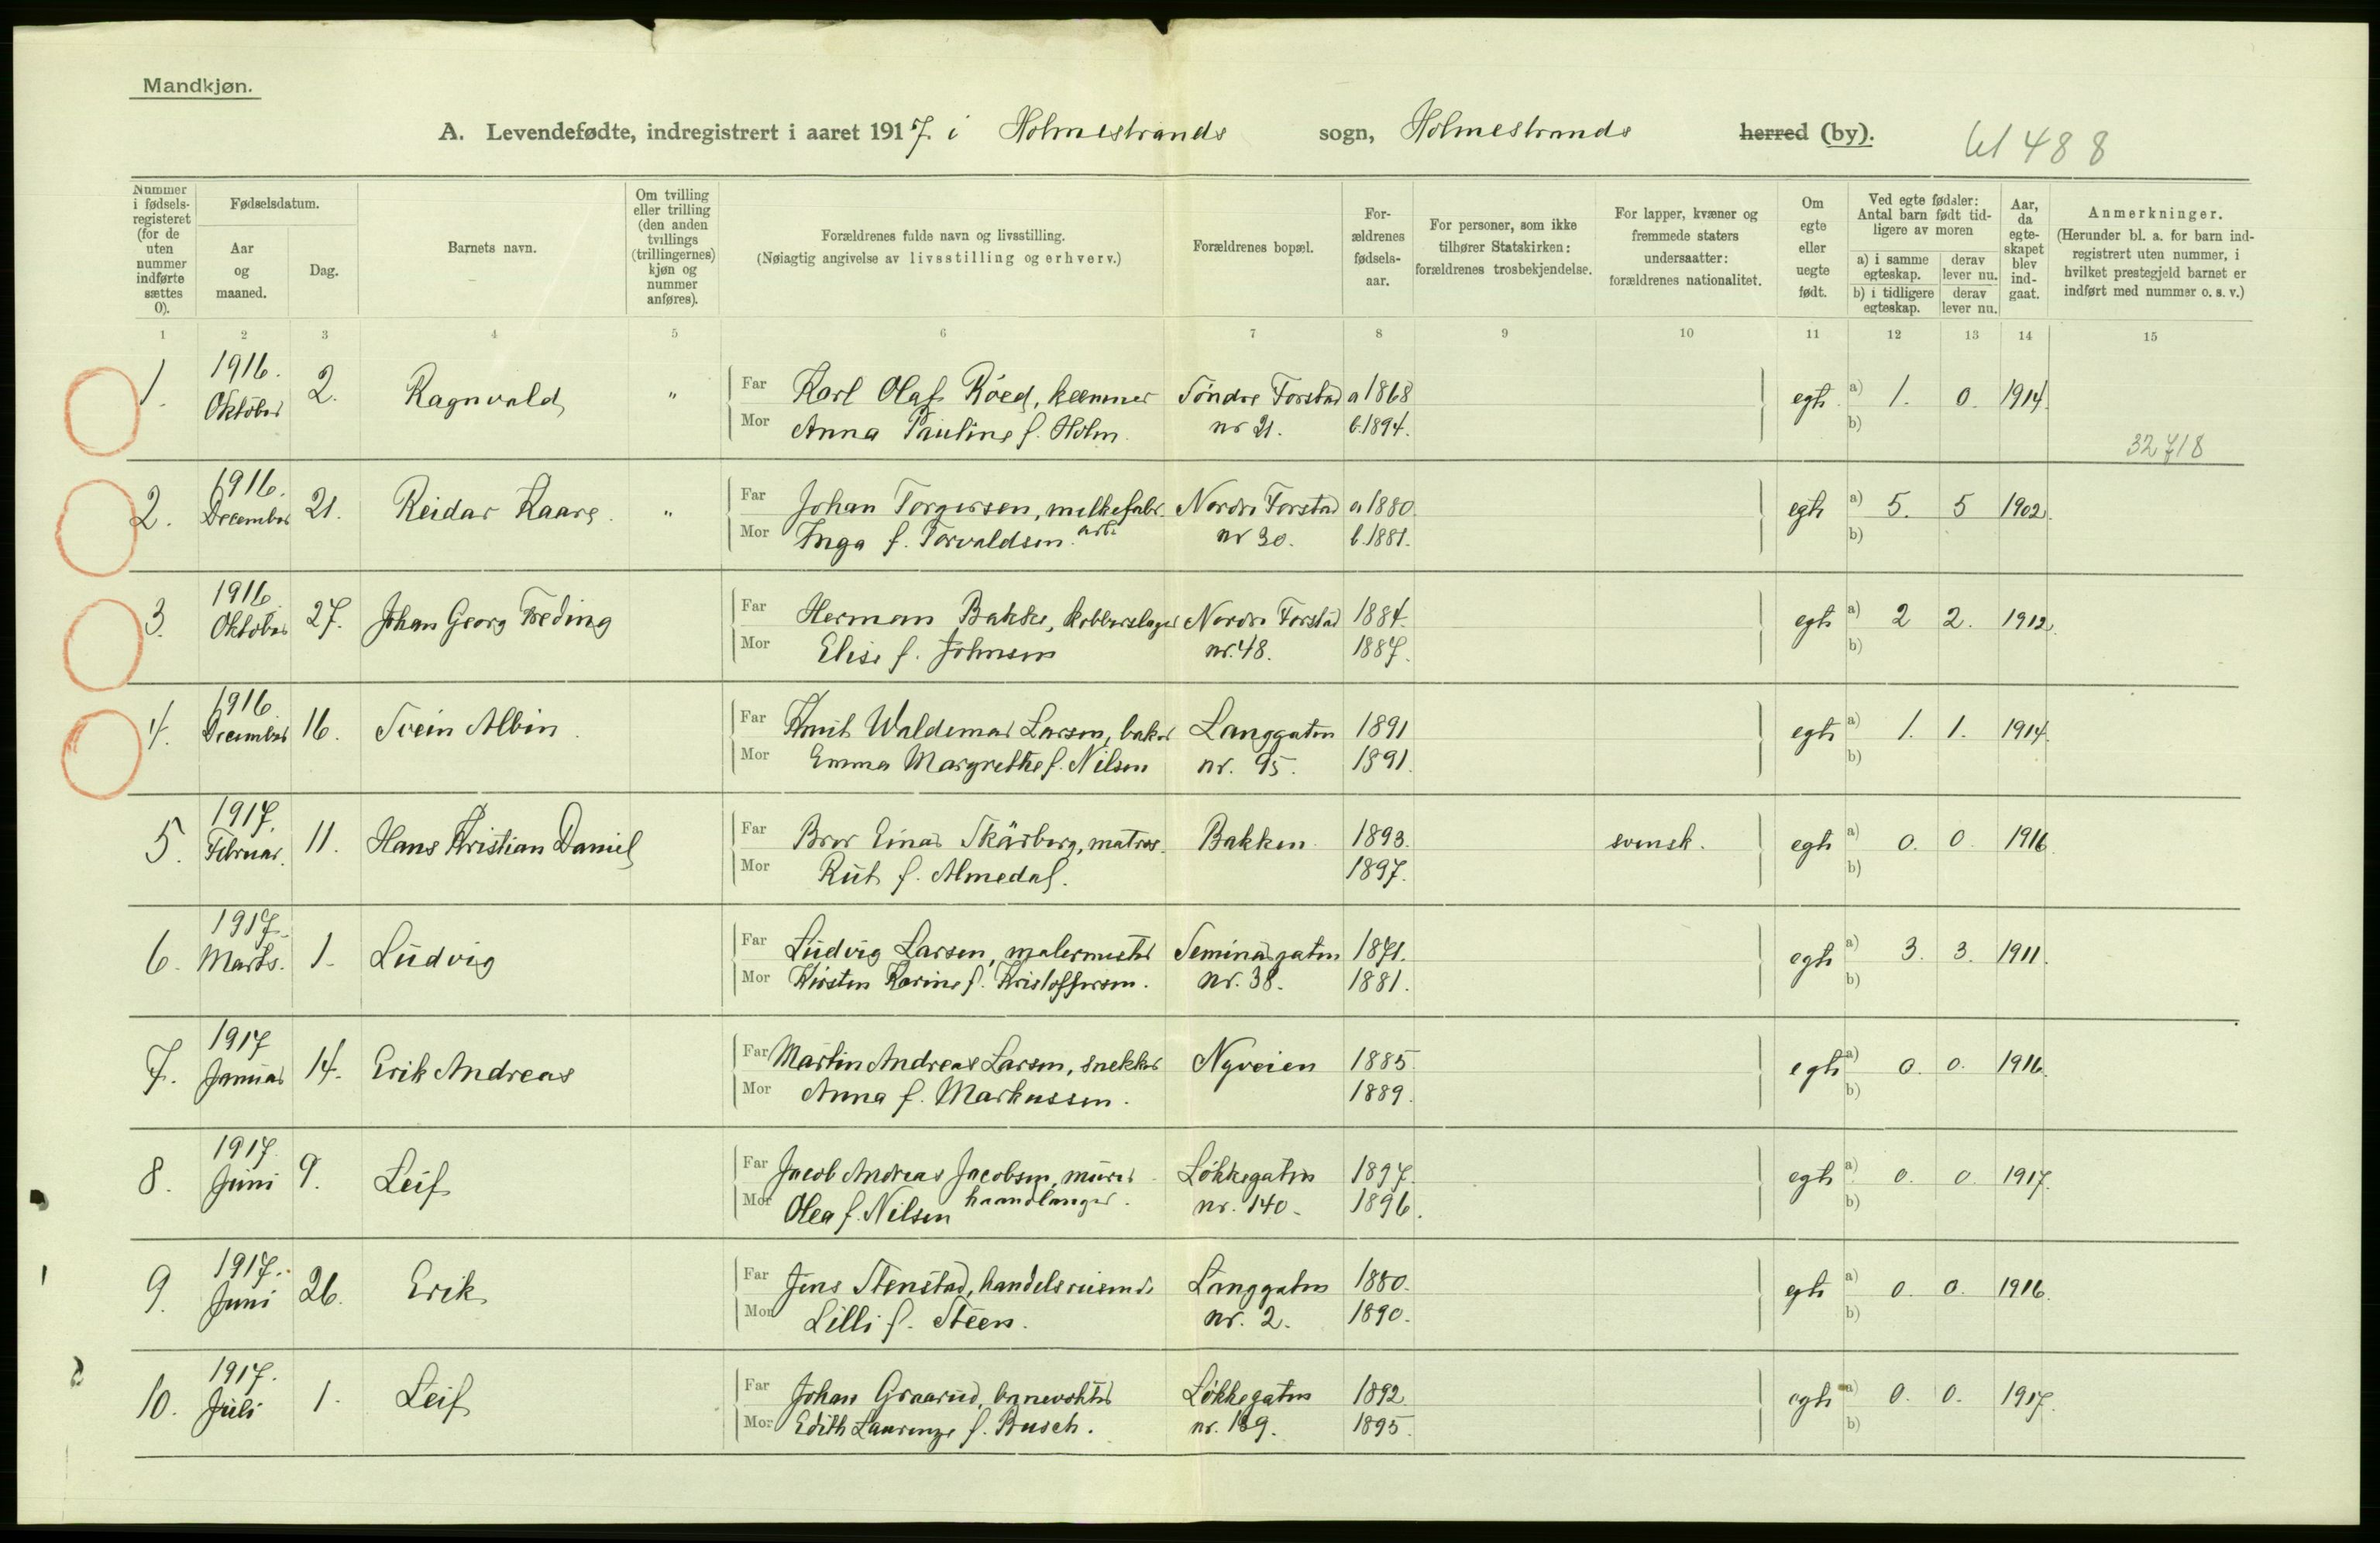 Mandkjøn.
A. Levendefødte, indregistrert i aaret 1917. i Holmestrands sogn, Holmestrands herred (by).
488
Nummer i fødsels-registeret (for de uten nummer indførte sættes 0).
Fødselsdatum.
Aar og maaned.
Dag.
Barnets navn.
Om tvilling eller trilling (den anden tvillings (trillingernes) kjøn og nummer anføres).
Forældrenes fulde navn og livsstilling.
(Nøiagtig angivelse av livsstilling og erhverv.)
Forældrenes bopæl.
For-ældrenes fødsels-aar.
For personer, som ikke tilhører Statskirken: forældrenes trosbekjendelse.
For lapper, kvæner og fremmede staters undersaatter: forældrenes nationalitet.
Om egte eller uegte født.
Ved egte fødsler: Antal barn født tid-ligere av moren
a) i samme egteskap.
derav lever nu.
b) i tidligere egteskap.
derav lever nu.
Aar, da egte-skapet blev ind-gaat.
Anmerkninger.
(Herunder bl. a. for barn ind-registrert uten nummer, i hvilket prestegjeld barnet er indført med nummer o. s. v.)
1 2 3 4 5 6 7 8 9 10 11 12 13 14 15
1. 1916. Oktober 2. Ragnvald " Far Karl Olaf Röed, kæmner Söndre Forstad a 1868 egte a) 1. 0. 1914.
Mor Anna Pauline f. Holm. nr 21. b. 1894. b)
32718
2. 1916. December 21. Reidar Kaare. " Far Johan Torgersen, melkefabr. Nordre Forstad a 1880. egte a) 5. 5 1902.
Mor Inga f. Torvaldsen. arb. nr 30. b. 1881. b)
3. 1916 Oktober 27. Johan Georg Freding Far Herman Bakke, kobberslager Nordre Forstad 1884. egte a) 2 2. 1912.
Mor Elise f. Johnsen nr. 48. 1887. b)
4. 1916 December 16. Svein Albin. Far Knut Waldemar Larsen, baker Langgaten 1891 egte a) 1. 1. 1914.
Mor Emma Margrethe f. Nilsen nr. 95. 1891. b)
5. 1917. Februar. 11. Hans Kristian Daniel Far Bror Einar Skärberg, matros. Bakken. 1893. svensk. egte a) 0. 0. 1916.
Mor Rut f. Almedal. 1897. b)
6. 1917. Marts. 1. Ludvig Far Ludvig Larsen, malermester Seminargaten 1871. egte a) 3. 3. 1911.
Mor Kirsten Karine f. Kristoffersen. nr. 38. 1881. b)
7. 1917 Januar 14. Erik Andreas Far Martin Andreas Larsen, snekker Nyveien 1885. egte a) 0. 0. 1916.
Mor Anna f. Markussen. 1889. b)
8. 1917. Juni 9. Leif Far Jacob Andreas Jacobsen, murer Lökkegaten 1897. egte a) 0. 0. 1917.
Mor Olea f. Nilsen haandlanger. nr. 140. 1896. b)
9. 1917. Juni 26. Erik Far Jens Stenstad, handelsreisende Langgaten 1880. egte a) 0. 0. 1916.
Mor Lilli f. Steen. nr. 2. 1890. b)
10. 1917. Juli 1. Leif Far Johan Graarud, Lökkegaten 1892. egte a) 0. 0. 1917.
Mor Edith Laurenze f. Busch. nr. 1895. b)